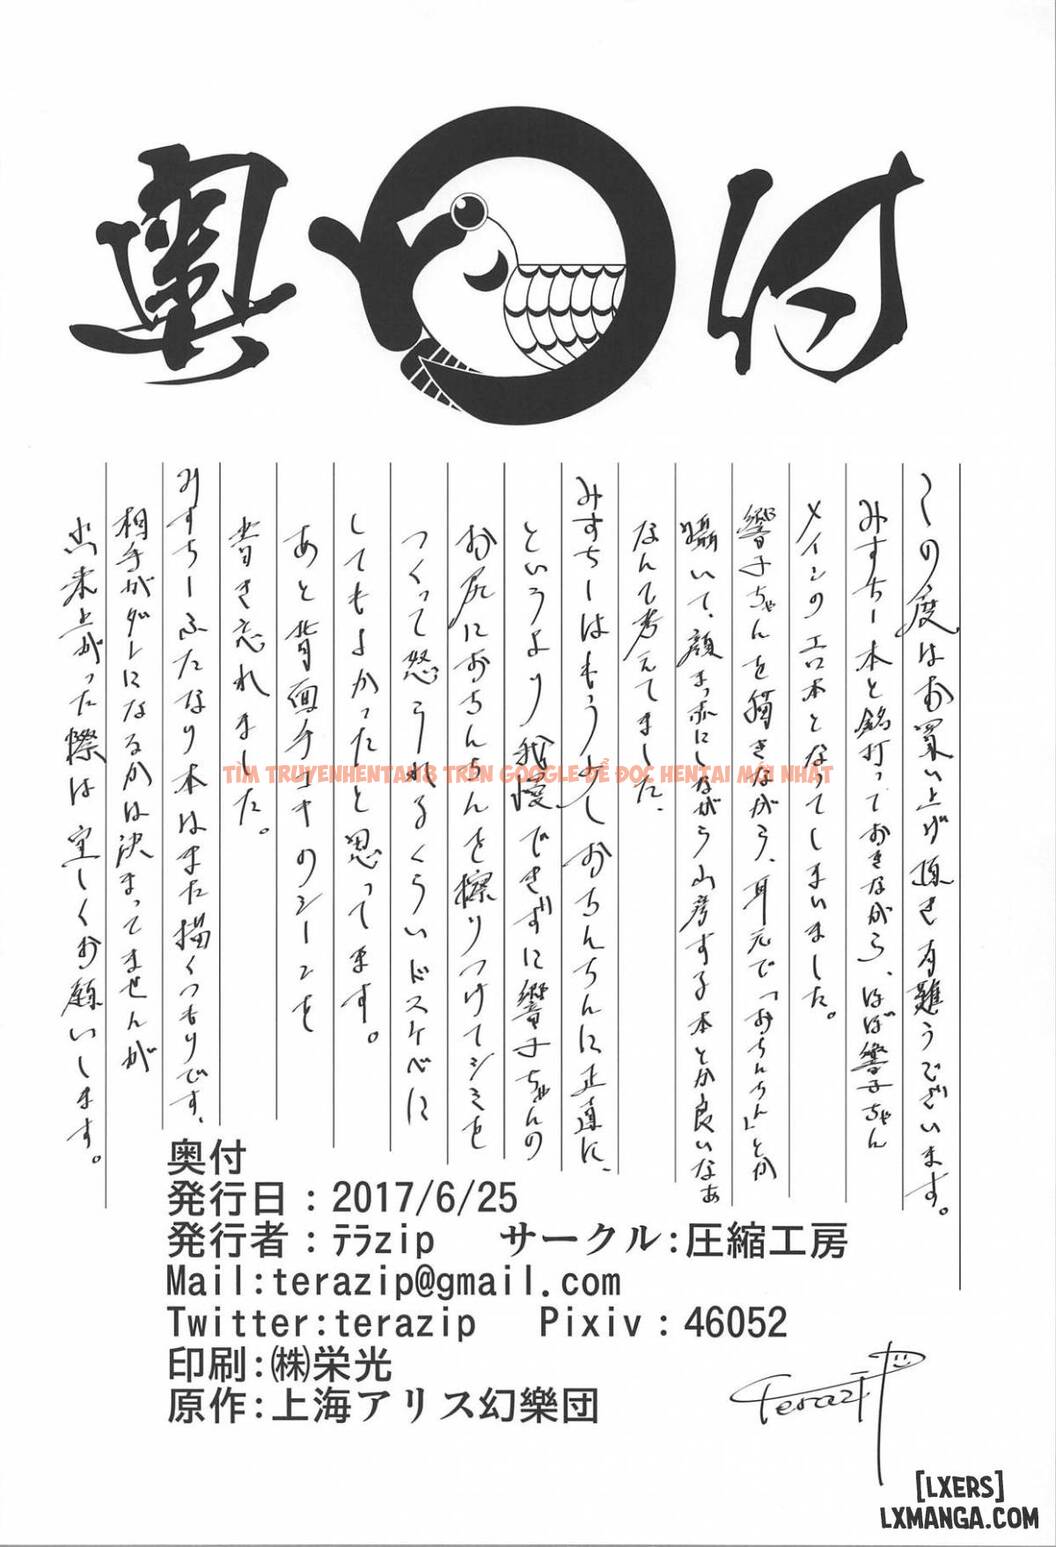 奥付
この度はお買い上げ頂き有難うございます。
みすちー本と銘打っておきながら、ほぼ響子ちゃん
メインのエロ本となってしまいました。
響子ちゃんを描きながら、耳元で「おちんちん」とか
囁いて、顔まっ赤にしながら山彦する本とか良いなぁ
なんて考えてました。
みすちーはもう少しおちんちんに正直に、
というより我慢できずに響子ちゃんの
お尻におちんちんを擦りつけてシミを
つくって怒られるくらいドスケベに
してもよかったと思ってます。
あと背面手コキのシーンを
書き忘れました。
みすちーふたなり本はまた描くつもりです、
相手がダレになるかは決まってませんが
出来上がった際は宜しくお願いします。
TÌM TRUYENHENTAN8 TRÊN GOOGLE ĐỂ ĐỌC HENTAI MỚI NHẤT
奥付
発行日：2017/6/25
発行者：ﾃﾗzip サークル:圧縮工房
Mail:terazip@gmail.com
Twitter:terazip Pixiv：46052
印刷:㈱栄光
原作:上海アリス幻樂団
Terazip
[LXERS]
LXMANGA.COM